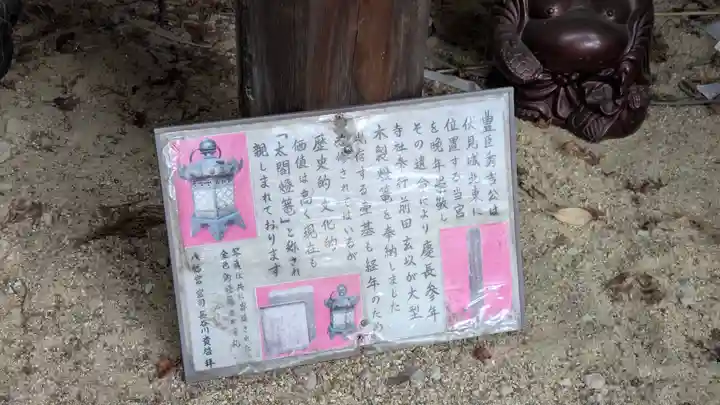 豊臣秀吉公は
伏見城の東に
位置する当宮
を晩年崇敬し
その遺命により慶長参年
寺社奉行前田玄以が大型
木製燈篭を奉納しました
現存する壱基も経年のため
改修されてはいるが
歴史的文化的
価値は高く現在も
「太閤燈篭」と称され
親しまれております
八幡宮宮司長谷川